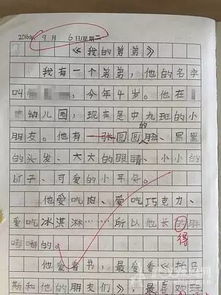 9月 6日星期二
《我的弟弟》
我有一个弟弟，他的名字
叫 ，今年4岁。他在
幼儿园，现在是中九班的小
朋友。他有一张圆圆的脸、黑黑
的头发、大大的眼睛、小小的
可爱的小耳朵。
他爱吃肉、爱吃巧克力、
爱吃冰淇淋……所以他长得
得
嘟嘟的。
他爱看书，最爱看《托马
斯和他的朋友们》，最